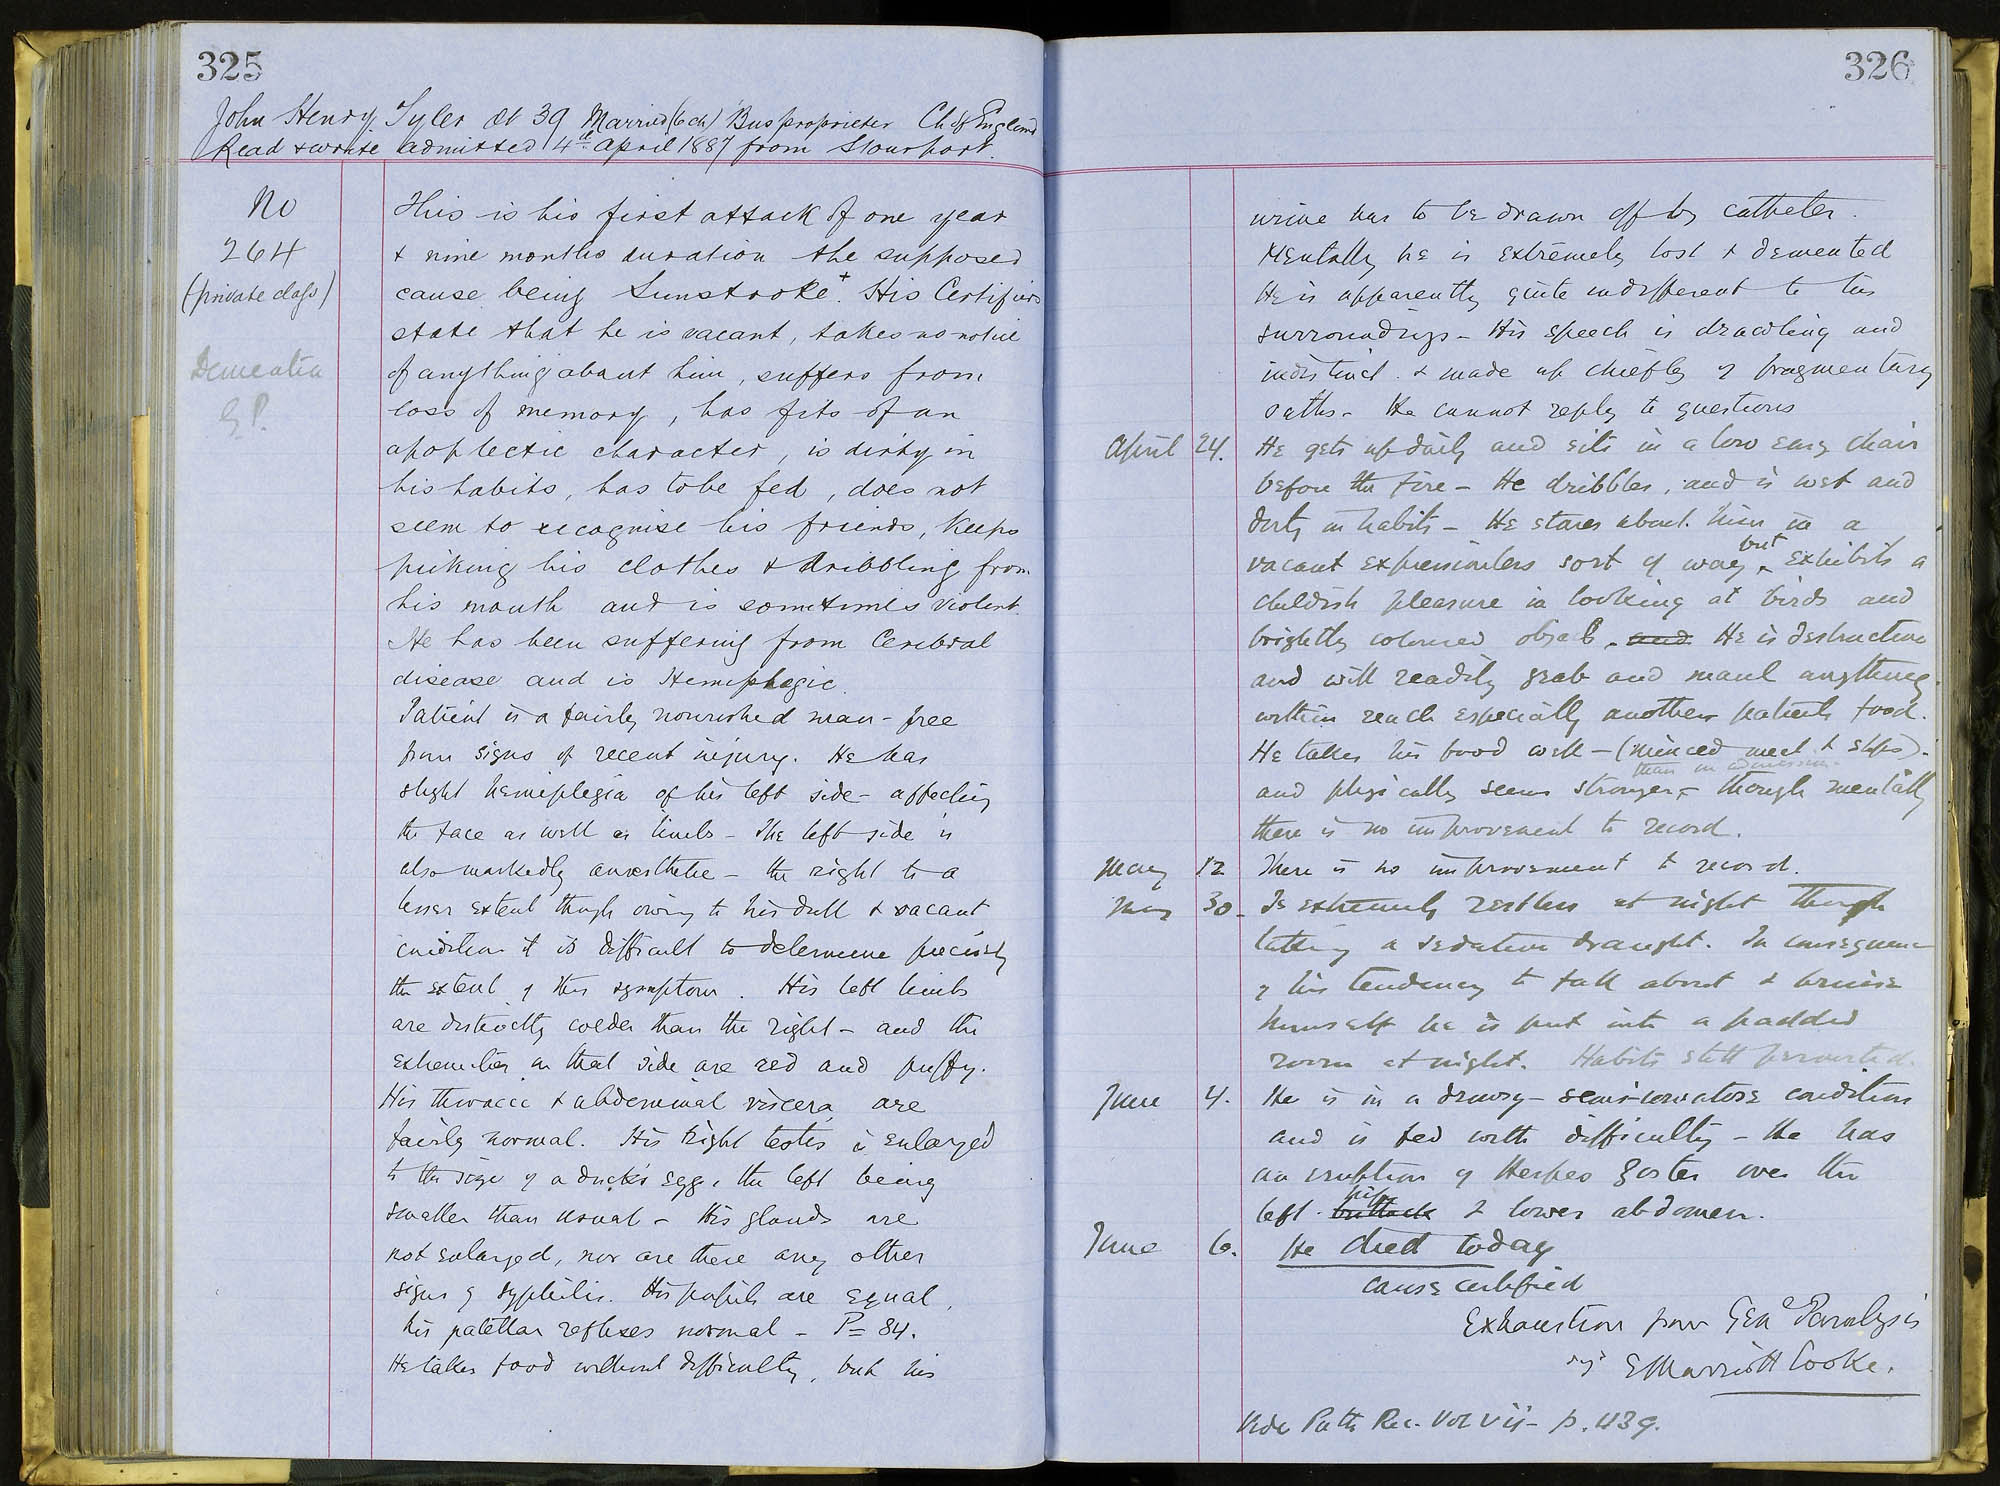 325
John Henry Tyler æt 39 Married (6 ch) Bus proprietor Ch of England
Read & write admitted 4th April 1887 from Stourport.
No
264
(private class)
Dementia
G.P.
This is his first attack of one year
& nine months duration the supposed
cause being Sunstroke +. His Certifiers
state that he is vacant, takes no notice
of anything about him, suffers from
loss of memory, has fits of an
apoplectic character, is dirty in
his habits, has to be fed, does not
seem to recognise his friends, keeps
picking his clothes & dribbling from
his mouth and is sometimes violent.
He has been suffering from Cerebral
disease and is Hemiplegic.
Patient is a fairly nourished man - free
from signs of recent injury. He has
slight hemiplegia of his left side - affecting
the face as well as limbs - The left side is
also markedly anæsthetic - the right to a
lesser extent though owing to his dull & vacant
condition it is difficult to determine precisely
the extent of this symptom. His left limbs
are distinctly colder than the right - and the
extremities on that side are red and puffy.
His thoracic & abdominal viscera are
fairly normal. His right testis is enlarged
to the size of a duck's egg, the left being
smaller than usual - His glands are
not enlarged, nor are there any other
signs of syphilis. His pupils are equal,
his patellar reflexes normal - P = 84.
He takes food without difficulty, but his
326
urine has to be drawn off by catheter.
Mentally he is extremely lost & demented
He is apparently quite indifferent to his
surroundings - His speech is drawling and
indistinct & made up chiefly of fragmentary
oaths - He cannot reply to questions
April 24. He gets up daily and sits in a low easy chair
before the fire - He dribbles, and is wet and
dirty in habits - He stares about him in a
vacant expressionless sort of way but exhibits a
childish pleasure in looking at birds and
brightly coloured objects. and He is destructive
and will readily grab and maul anything
within reach especially another patients food.
He takes his food well - (minced meat & slops).
and physically seems stronger than on admission - though mentally
there is no improvement to record.
May 12 There is no improvement to record.
May 30 - Is extremely restless at night though
taking a sedative draught. In consequence
of his tendency to fall about & bruise
himself he is put into a padded
room at night. Habits still perverted.
June 4. He is in a drowsy - semi-comatose condition
and is fed with difficulty - He has
an eruption of Herpes Zoster over the
left buttock hip & lower abdomen.
June 6. He died today
cause certified
Exhaustion from Gen Paralysis
sig E Marriott Cooke.
Vide Path Rec. Vol vii - p. 439.